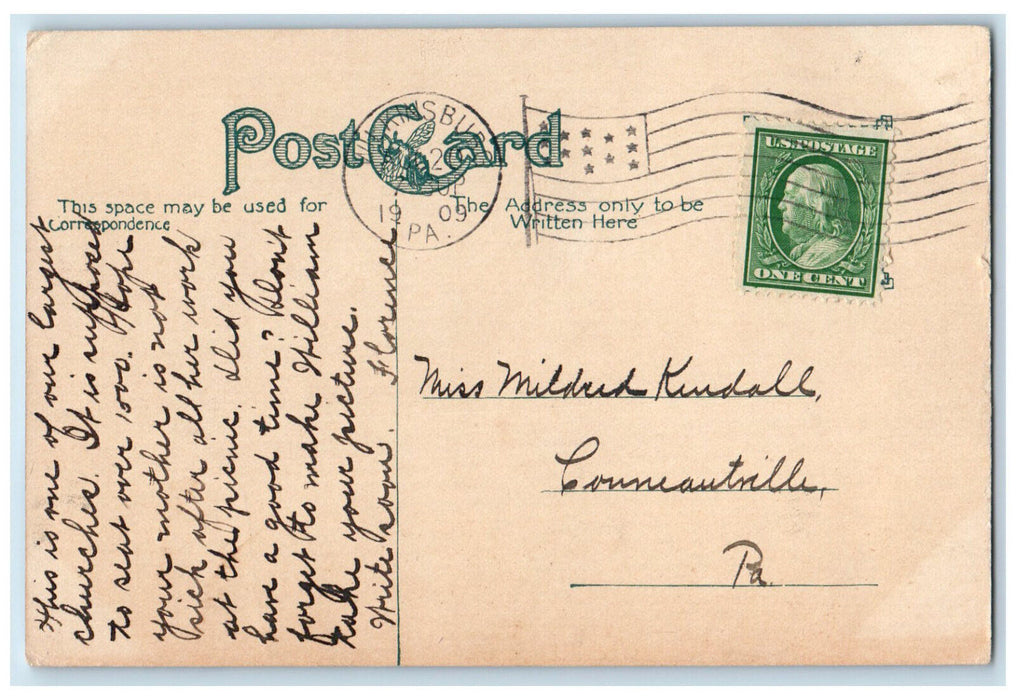 Post Card
This space may be used for
Correspondence
The Address only to be
Written Here
NSBU
19 09
PA.
U.S. POSTAGE
ONE CENT
This is one of our largest
churches. It is supposed
to seat over 1000. Hope
your mother is not
sick after all her work
at the picnic. Did you
have a good time? Don't
forget to make William
take your picture.
Write soon. Florence.
Miss Mildred Kendall,
Conneautville,
Pa.